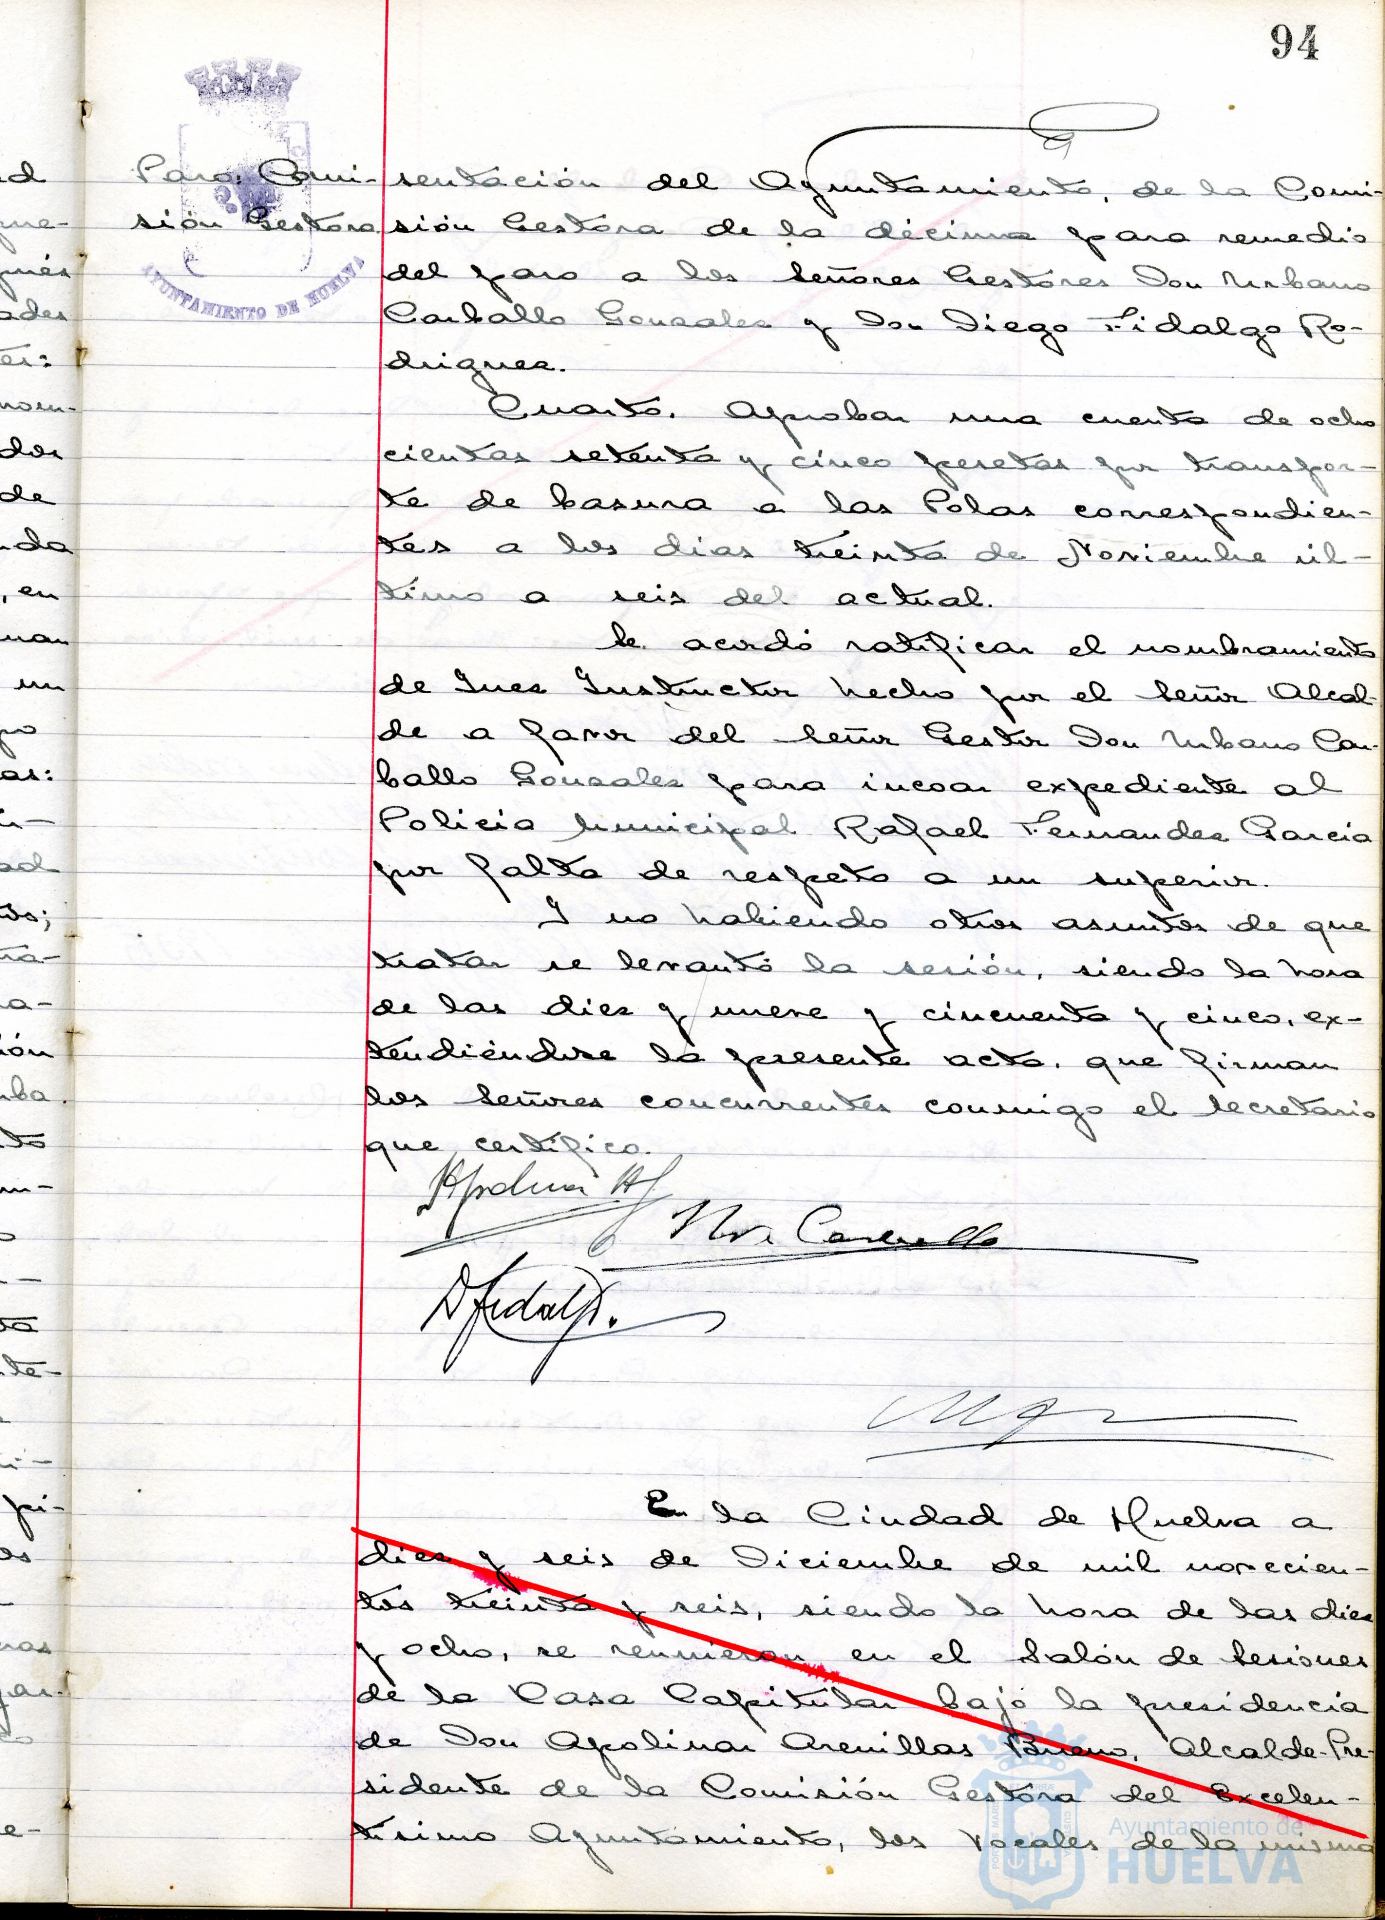 94
Paro, Comi-
sión Gestora
AYUNTAMIENTO DE HUELVA
sentación del Ayuntamiento, de la Comi-
sión Gestora de la décima para remedio
del paro a los Señores Gestores Don Urbano
Carballo Gonzalez y Don Diego Fidalgo Ro-
driguez.
Cuarto. Aprobar una cuenta de ocho
cientas setenta y cinco pesetas por transpor-
te de basura a las Polas correspondien-
tes a los dias treinta de Noviembre úl-
timo a seis del actual.
Se acordó ratificar el nombramiento
de Juez Instructor hecho por el Señor Alcal-
de a favor del Señor Gestor Don Urbano Car-
ballo Gonzalez para incoar expediente al
Policia Municipal Rafael Fernandez Garcia
por falta de respeto a un superior.
Y no habiendo otros asuntos de que
tratar se levantó la sesión, siendo la hora
de las diez y nueve y cincuenta y cinco, ex-
tendiéndose la presente acta, que firman
los Señores concurrentes conmigo el Secretario
que certifico.
Apolinar A
Urb. Carballo
D Fidalgo.
En la Ciudad de Huelva a
diez y seis de Diciembre de mil novecien-
tos treinta y seis, siendo la hora de las diez
y ocho, se reunieron en el Salón de Sesiones
de la Casa Capitular bajo la presidencia
de Don Apolinar Arenillas Bueno, Alcalde-Pre-
sidente de la Comisión Gestora del Excelen-
tisimo Ayuntamiento, los Vocales de la misma
Ayuntamiento de
HUELVA